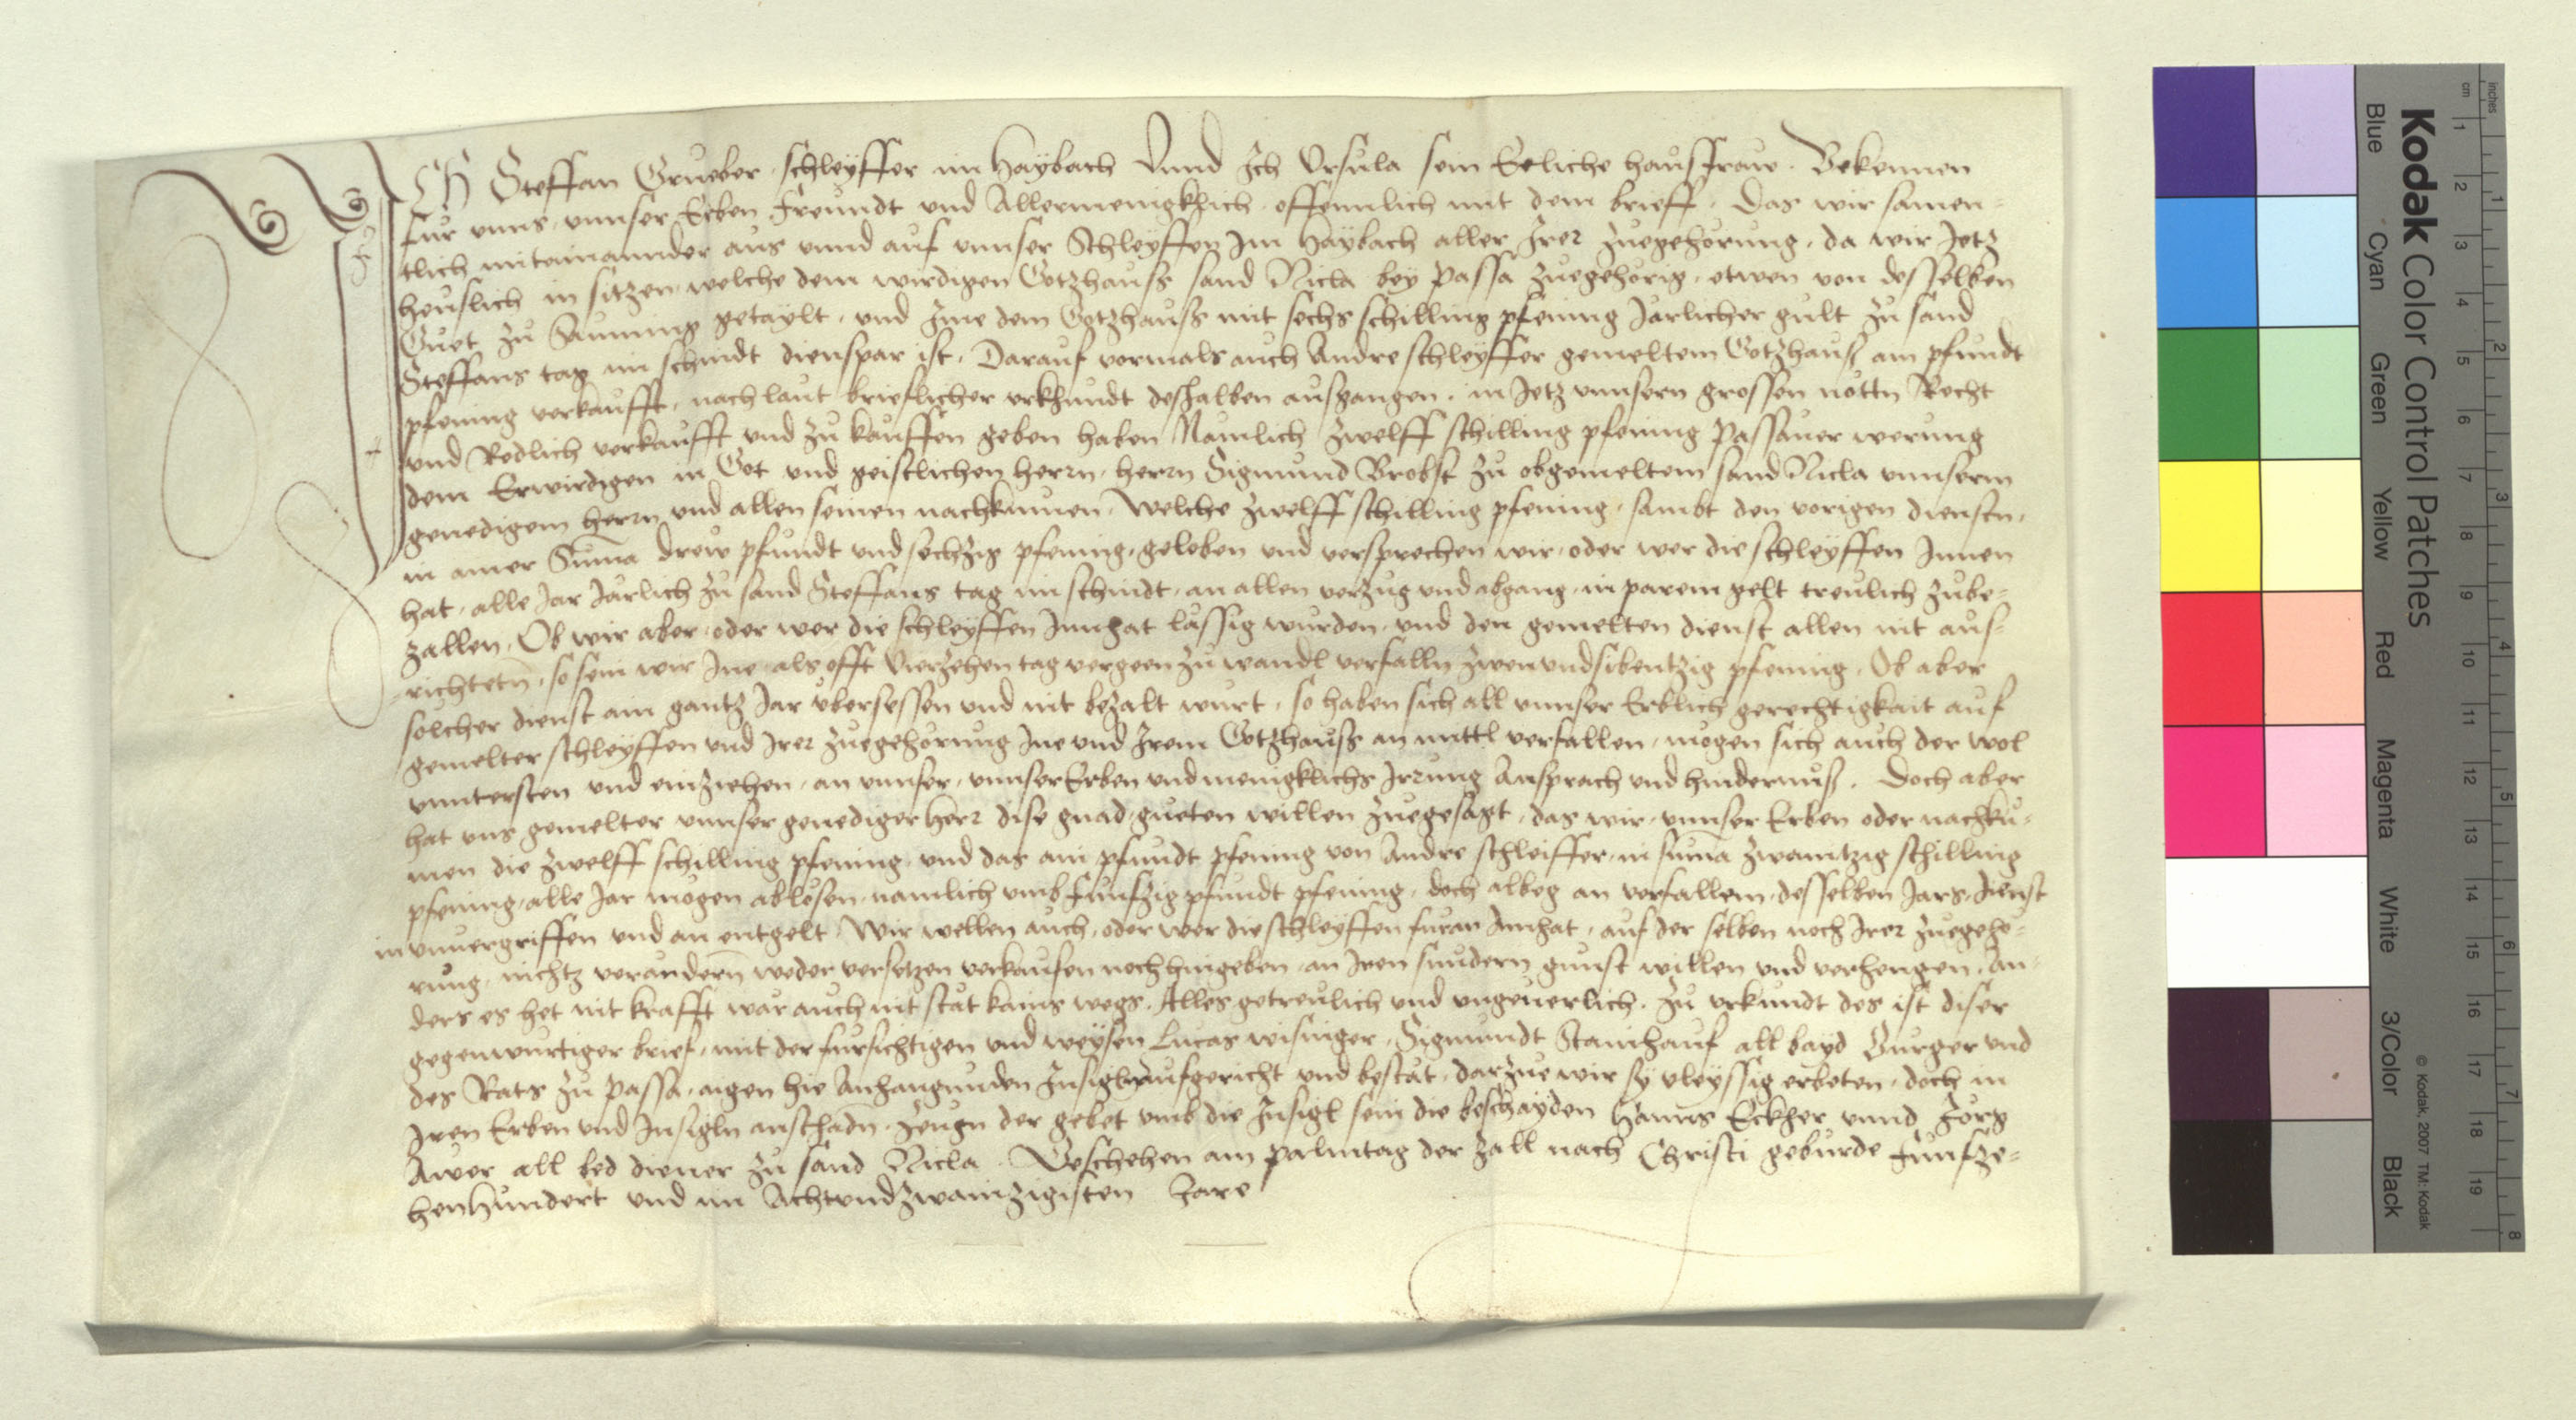 ICH Steffan Grueber schleyffer im Haybach Vnnd Ich Vrsula sein Eeliche hausfraw. Bekennen
fur vnns, vnnser Erben Freundt vnd Allermenigklich offennlich mit dem brieff. Das wir samen-
tlich miteinannder aus vnnd auf vnnser Schleyffen Im Haybach aller Irer zuegehorung, da wir Jetz
heuslich in sitzen welche dem wirdigen Gotzhauss sand Nicla bey Passa zuegehorig, etwen von desselben
Guet zu getaylt, vnd Ime dem Gotzhauss mit sechs schilling pfening Jarlicher gult zu sand
Steffans tag im schnidt dienspar ist. Darauf vormals auch Andre schleyffer gemeltem Gotzhauss am pfundt
pfening verkaufft, nach laut brieflicher vrkhundt deshalben ausgangen. in Jetz vnnsern grossen nottn Recht
vnd Redlich verkaufft vnd zu kauffen geben haben Namlich zwelff schilling pfening Passauer werung
dem Erwirdigen in Got vnd geistlichen herrn, herrn Sigmund Brobst zu obgemeltem sand Nicla vnnserm
genedigem herrn vnd allen seinen nachkumen. Welche zwelff schilling pfening, sambt den vorigen diensten,
in ainer Suma drew pfundt vnd sechzig pfening, geloben vnd versprechen wir, oder wer die schleyffen Innen
hat, alle Jar Jarlich zu sand Steffans tag im schnidt, an allen verzug vnd abgang, in parem gelt treulich zube-
zallen. Ob wir aber, oder wer die schleyffen Innhat lassig wurden, vnd den gemelten dienst allen nit aus-
richteten, so sein wir Ine als offt Vierzehen tag vergeen zu wandl verfalln zwenvndsibentzig pfening. Ob aber
solcher dienst ain gantz Jar vbersessen vnd nit bezalt wurt, so haben sich all vnnser Erblich gerechtigkait auf
gemelter schleyffen vnd Irer zuegehorung Ine vnd Irem Gotzhauss an mittl verfallen, mogen sich auch der wol
vnntersten vnd einziehen, an vnnser, vnnser Erben vnd menigklichs Irrung Ansprach vnd hindernuss. Doch aber
hat vns gemelter vnnser genediger herr dise gnad, gueten willen zuegesagt, das wir, vnnser Erben oder nachku-
men die zwelff schilling pfening, vnd das ain pfundt pfening von Andre schleiffer, in suma zwaintzig schilling
pfening, alle Jar mogen ablosen, namlich vmb funfzig pfundt pfening, doch albeg an verfallem, desselben Jars, dienst
in vnuergriffen vnd an entgelt. Wir wellen auch, oder wer die schleyffen furan Innhat, auf der selben noch Irer zuegeho-
rung, nichtz verandern weder versetzen verkaufen noch hingeben, an Iren sundern gunst willen vnd verhengen, An-
ders es het nit krafft war auch nit stat kains wegs. Alles getreulich vnd vngeuerlich. Zu vrkundt des ist diser
gegenwurtiger brief, mit der fursichtigen vnd weysen Lucas wisinger, Sigmundt Stainhauf all bayd Burger vnd
des Rats zu Passa, aigen hie Anhangunden Insigln aufgericht vnd bestat, darzue wir sy vleyssig erbeten, doch in
Iren Erben vnd Insigln anschadn. Zeugn der gebet vmb die Insigl sein die beschayden Hanns Eckher vnnd Jorg
Awer all bed diener zu sand Nicla. Geschehen am palmtag der zall nach Christi geburde funfze-
henhundert vnd im Achtvndzwainzigisten Jare
Kodak Color Control Patches
Blue Cyan Green Yellow Red Magenta White 3/Color Black
© Kodak, 2007 TM: Kodak
inches 1 2 3 4 5 6 7 8
cm 1 2 3 4 5 6 7 8 9 10 11 12 13 14 15 16 17 18 19